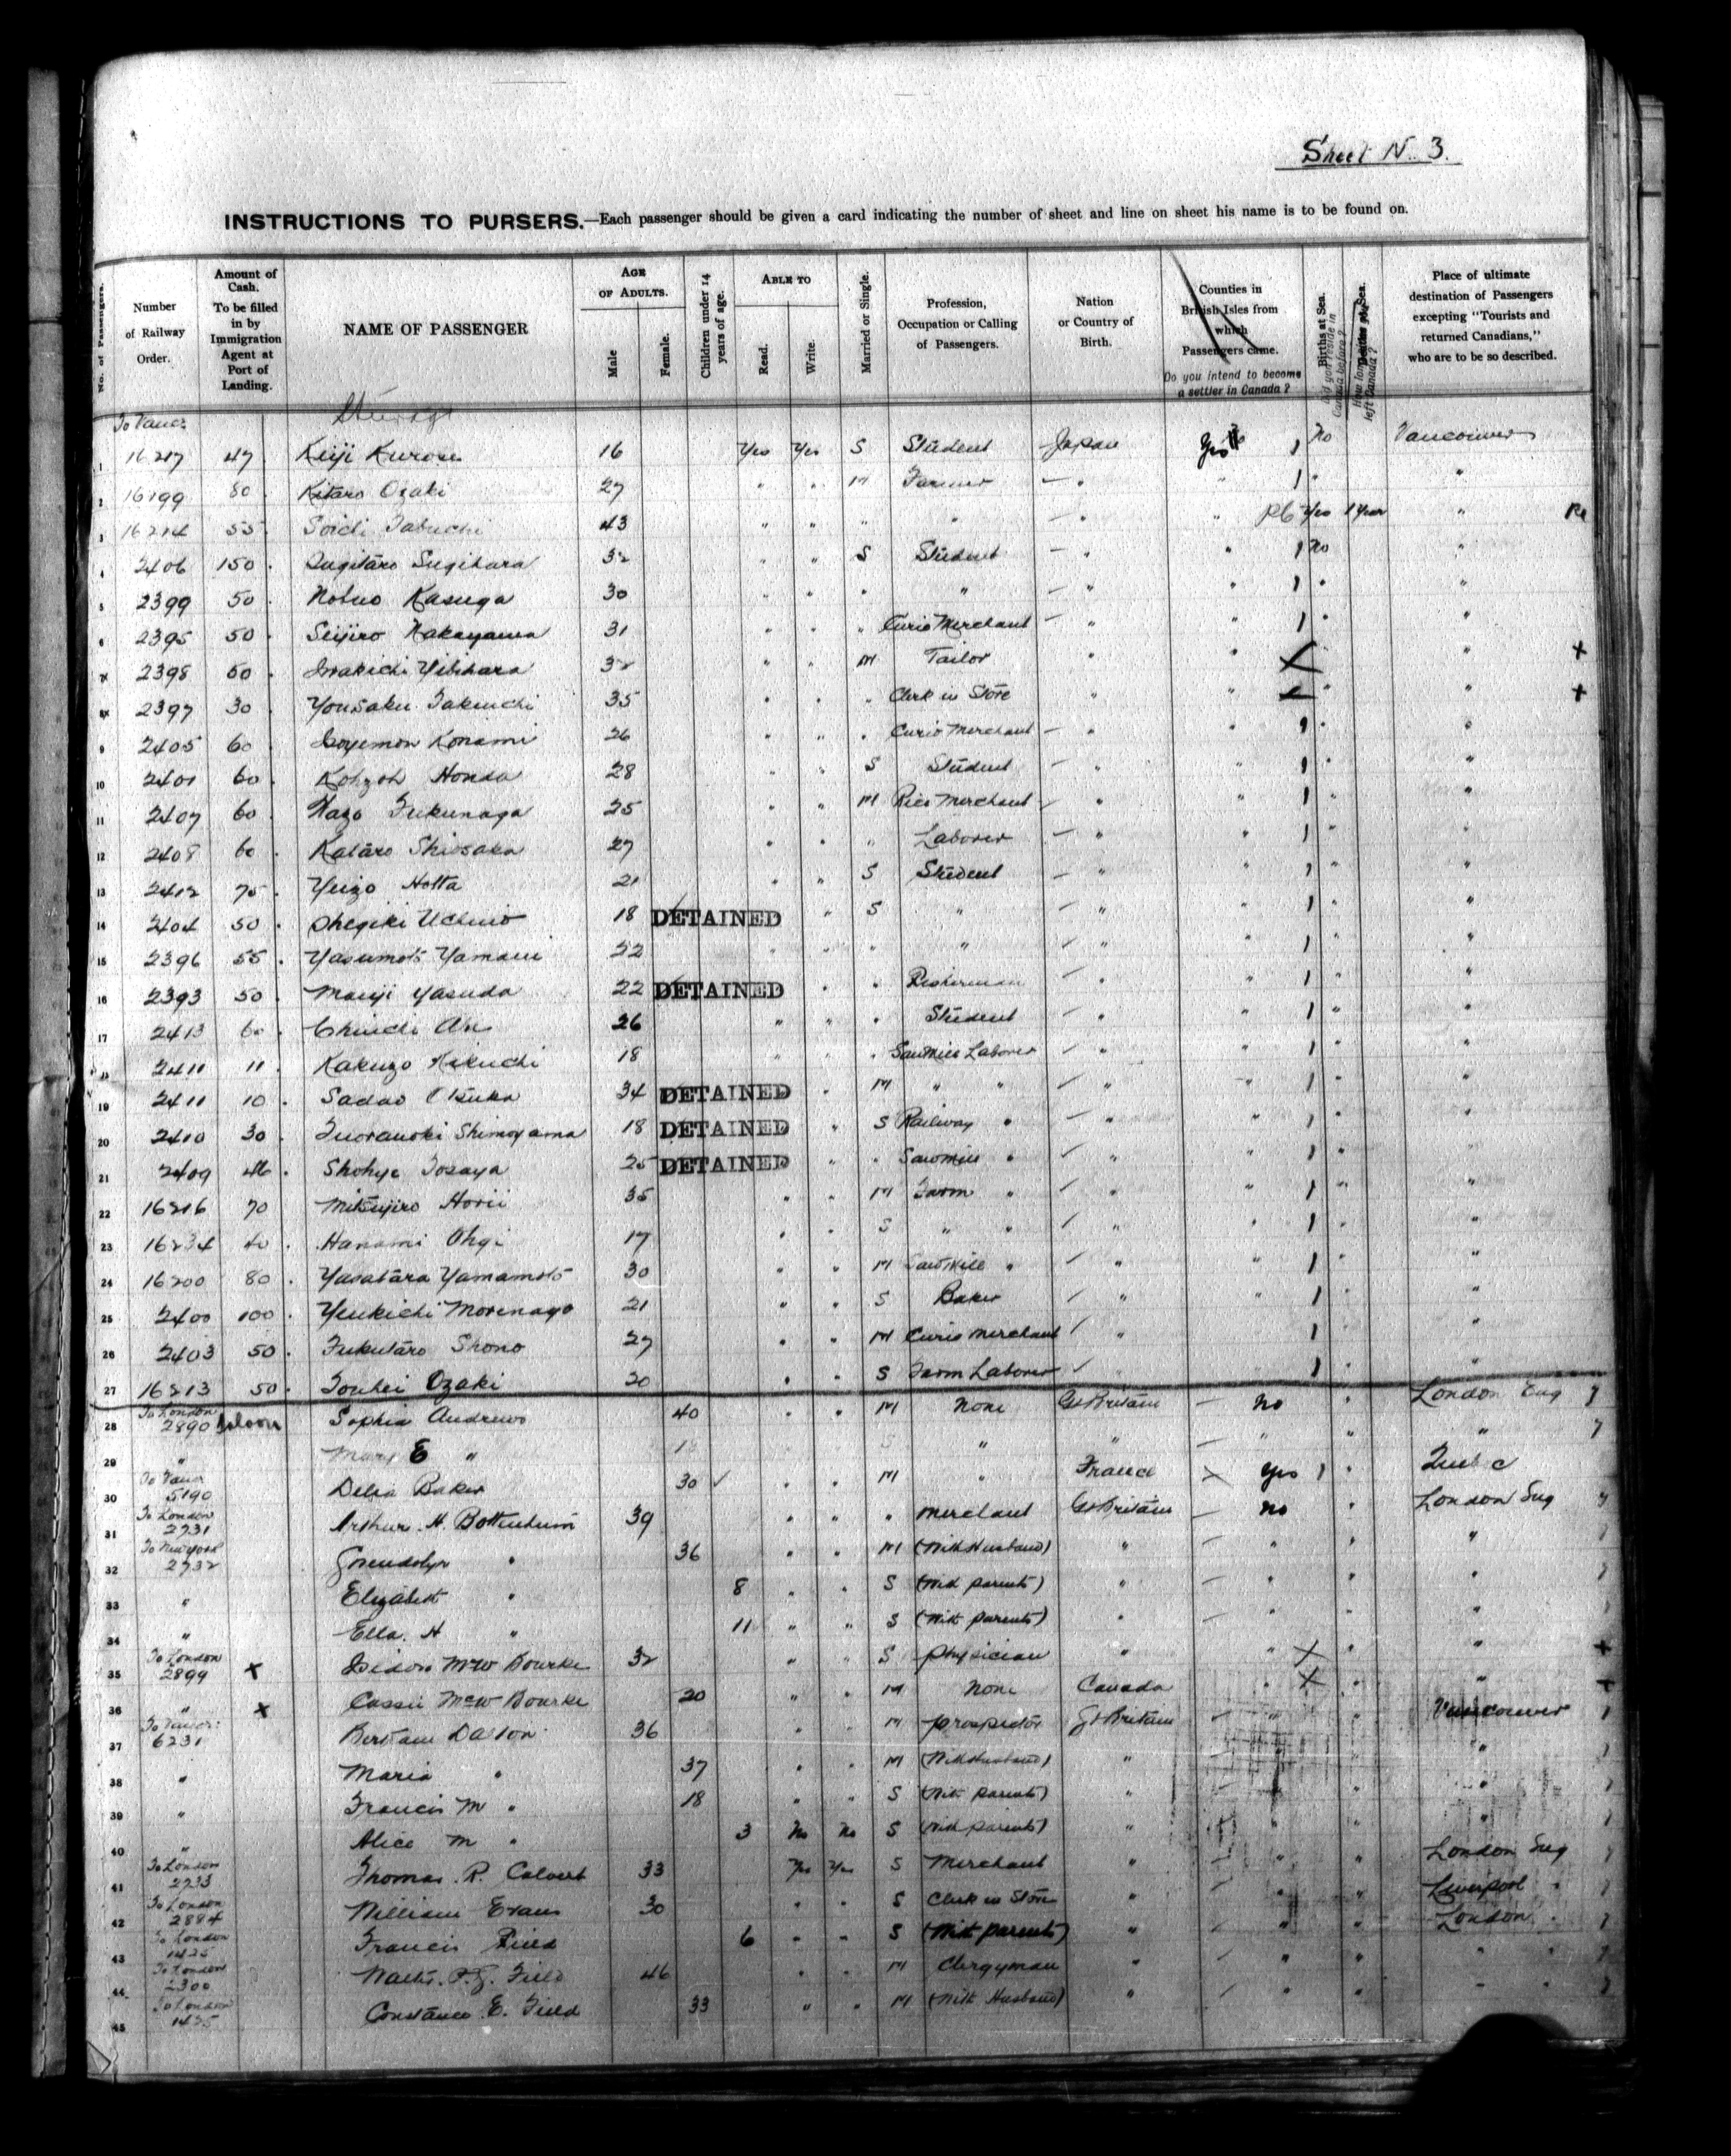 Sheet No. 3.
INSTRUCTIONS TO PURSERS.—Each passenger should be given a card indicating the number of sheet and line on sheet his name is to be found on.
No. of Passengers. Number of Railway Order. Amount of Cash. To be filled in by Immigration Agent at Port of Landing. NAME OF PASSENGER AGE OF ADULTS. Male Female. Children under 14 years of age. ABLE TO Read. Write. Married or Single. Profession, Occupation or Calling of Passengers. Nation or Country of Birth. Counties in British Isles from which Passengers came. Do you intend to become a settler in Canada? Births at Sea. Did you reside in Canada before? Deaths at Sea. How long since you left Canada? Place of ultimate destination of Passengers excepting "Tourists and returned Canadians," who are to be so described.
To Vancr
1 16217 47 Keiji Kurose 16 Yes Yes S Student Japan Yes 1 no Vancouver
2 16199 80 Kitaro Ozaki 27 " " M Farmer " " 1 " "
3 16214 55 Soichi Tabuchi 43 " " " " " " Yes 1 Year "
4 2406 150 Sugihara 32 " " S Student " " 1 no "
5 2399 50 Nobuo Kasuga 30 " " " " " " 1 " "
6 2395 50 Seijiro Nakayama 31 " " " Curio Merchant " " 1 " "
7 2398 50 32 " " M Tailor " " X " +
8 2397 30 Yousaku Takeuchi 35 " " " Clerk in Store " " " " +
9 2405 60 Konami 26 " " " Curio Merchant " " 1 " "
10 2401 60 Kohzoh Honda 28 " " S Student " " 1 "
11 2407 60 Fukunaga 25 " " M Rice Merchant " " 1 " "
12 2408 60 Kataro Shiosaka 27 " " " Laborer " " 1 " "
13 2412 75 Yeizo Hotta 21 " " S Student " " 1 " "
14 2404 50 Shegiki Uchino 18 DETAINED " S " " " 1 " "
15 2396 55 Yasumoto 22 " " " " " " 1 " "
16 2393 50 Manji Yasuda 22 DETAINED " " Fisherman " " 1 " "
17 2413 60 Chuichi Abe 26 " " " Student " " 1 " "
18 2411 11 Kakuzo Kikuchi 18 " " " Sawmill Laborer " " 1 " "
19 2411 10 Sadao Otsuka 34 DETAINED " M " " " " 1 " "
20 2410 30 Shimoyama 18 DETAINED " S Railway " " " 1 " "
21 2409 46 Shohye Tosaya 25 DETAINED " " Sawmill " " " 1 " "
22 16216 70 Mitsujiro Horii 35 " " M Farm " " " 1 " "
23 16234 40 Hanami Ohgi 17 " " S " " " " 1 " "
24 16200 80 Yasataro Yamamoto 30 " " M Sawmill " " " 1 " "
25 2400 100 Yeukichi Morinaga 21 " " S Baker " " 1 " "
26 2403 50 Fukutaro Shono 27 " " M Curio Merchant " 1 "
27 16213 50 Touhei Ozaki 20 " " S Farm Laborer " 1 " "
28 To London 2890 Saloon Sophia Andrews 40 " " M None Gt Britain no " London Eng
29 " Mary E " S " " " " "
30 To Vancr 5190 Delia Baker 30 " " M " France Yes 1 " Quebec
31 To London 2731 Arthur. H. Bottenheim 39 " " " Merchant Gt Britain no " London Eng
32 To New York 2732 Gwendolyn " 36 " " M (With Husband) " " " "
33 " Elizabeth " 8 " " S (With parents) " " " "
34 " Ella. H " 11 " " S (With parents) " " " "
35 To London 2899 x Isidore McW Bourke 32 " " S Physician " " X " " +
36 " x Cassie McW Bourke 20 " " M None Canada " X " +
37 To Vancr 6231 Bertram Dalton 36 " " M Prospector Gt Britain " " Vancouver
38 " Maria " 37 " " M (With Husband) " " " "
39 " Francis M " 18 " " S (With parents) " " " "
40 " Alice M " 3 No No S (With parents) " " " "
41 To London 2733 Thomas. R. Calvert 33 Yes Yes S Merchant " " " London Eng
42 To London 2884 William Evans 30 " " S Clerk in Store " " " Liverpool "
43 To London 1425 Francis Field 6 " " S (With parents) " " " London.
44 To London 2300 Field 46 " " M Clergyman " " " " "
45 To London 1425 Constance. E. Field 33 " " M (With Husband) " " " " "